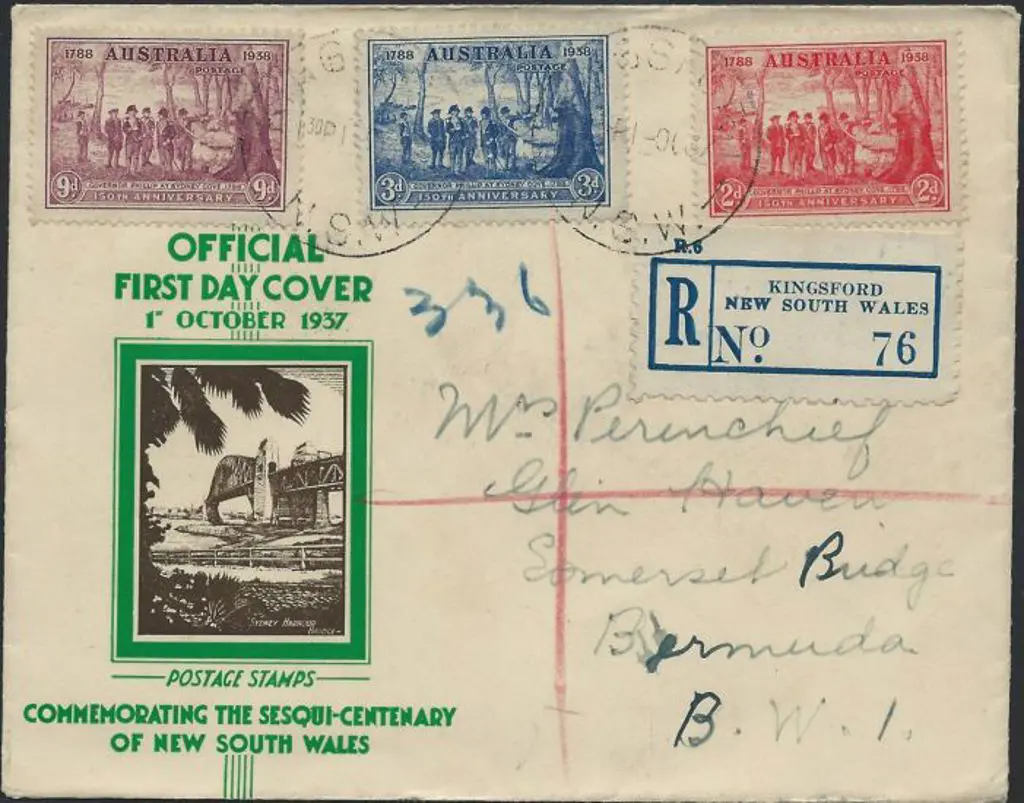 1788 AUSTRALIA 1938
POSTAGE
9d GOVERNOR PHILLIP AT SYDNEY COVE, 1788 9d
150TH ANNIVERSARY
1788 AUSTRALIA 1938
POSTAGE
3d GOVERNOR PHILLIP AT SYDNEY COVE, 1788 3d
150TH ANNIVERSARY
1788 AUSTRALIA 1938
POSTAGE
2d GOVERNOR PHILLIP AT SYDNEY COVE, 1788 2d
150TH ANNIVERSARY
N.S.W.
N.S.W.
OFFICIAL
FIRST DAY COVER
1ST OCTOBER 1937
336
R.6
R
KINGSFORD
NEW SOUTH WALES
No. 76
Mrs Perinchief
Glen Haven
Somerset Bridge
Bermuda
B.W.I.
SYDNEY HARBOUR
BRIDGE
POSTAGE STAMPS
COMMEMORATING THE SESQUI-CENTENARY
OF NEW SOUTH WALES